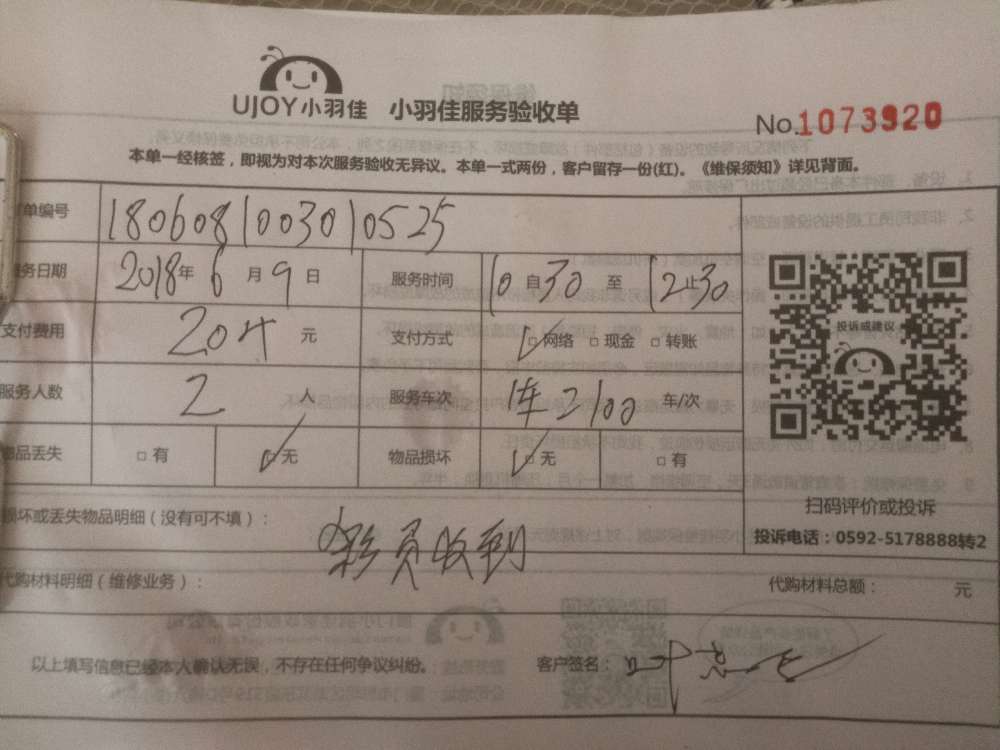 UJOY小羽佳 小羽佳服务验收单
No.1073920
本单一经核签，即视为对本次服务验收无异议。本单一式两份，客户留存一份(红)。《维保须知》详见背面。
单编号 1806081003010525
务日期 2018年 6 月 9 日 服务时间 10自30 至 12止30
支付费用 204 元 支付方式 ☑网络 □现金 □转账
投诉或建议
服务人数 2 人 服务车次 1车 2100 车/次
物品丢失 □有 ☑无 物品损坏 ☑无 □有
扫码评价或投诉
损坏或丢失物品明细（没有可不填）：
投诉电话：0592-5178888转2
员收到
代购材料明细（维修业务）： 代购材料总额： 元
以上填写信息已经本人确认无误，不存在任何争议纠纷。 客户签名：